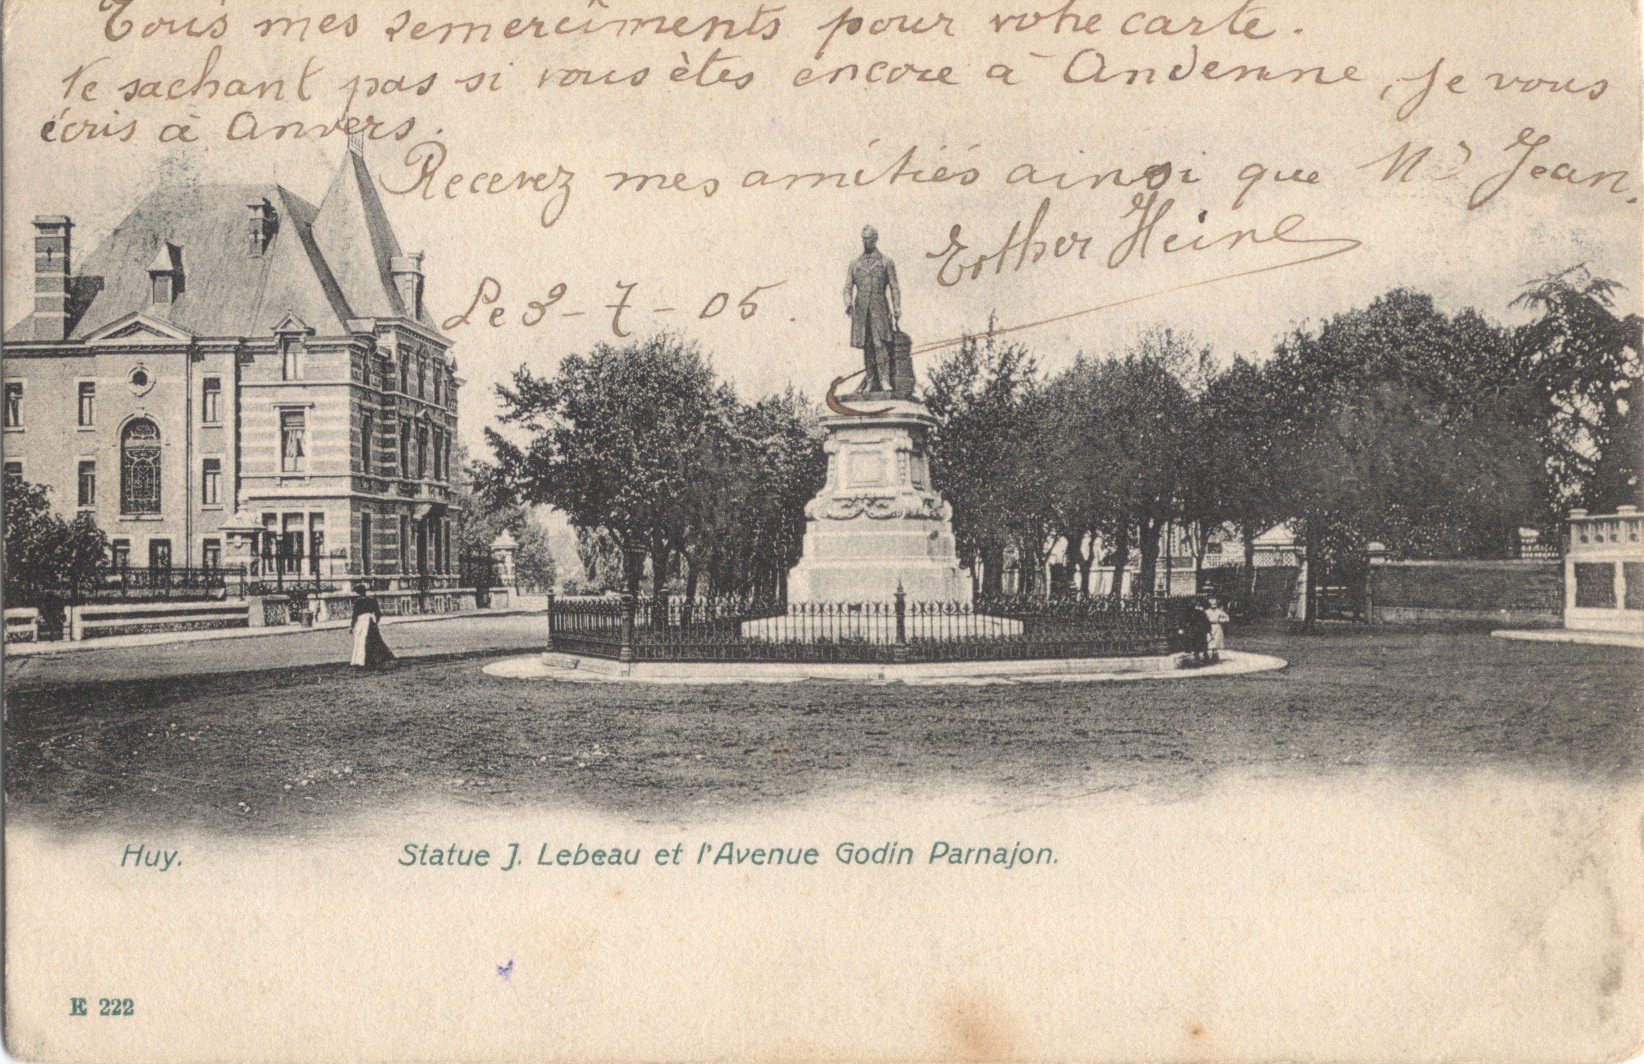 Tous mes remercîments pour votre carte.
Ne sachant pas si vous êtes encore à Andenne, je vous
écris à Anvers.
Recevez mes amitiés ainsi que Mr Jean.
Esther Heine
Le 3-7-05.
Huy. Statue J. Lebeau et l'Avenue Godin Parnajon.
E 222